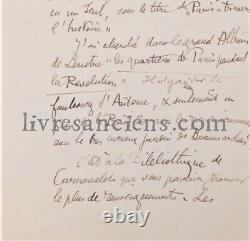 en un seul, sous le titre de "Paris" travers
l'histoire"
J'ai cherché dans le grand Album
de Lenotre "les quartiers de Paris pendant
la Révolution" Il n'y a
faubourg St Antoine, & seulement un
de Beaumarchais
C'est à la Bibliothèque de
Carnavalet que vous pourrez trouver
le plus de renseignements. Les
livresanciens.com